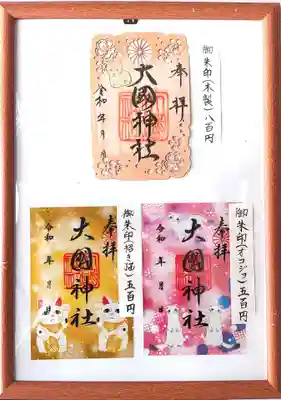 御朱印(木製)八百円
奉拝
大國神社
令和 年 月 日
御朱印(オコジョ)五百円
奉拝
大國神社
令和 年 月 日
御朱印(招き猫)五百円
奉拝
大國神社
令和 年 月 日